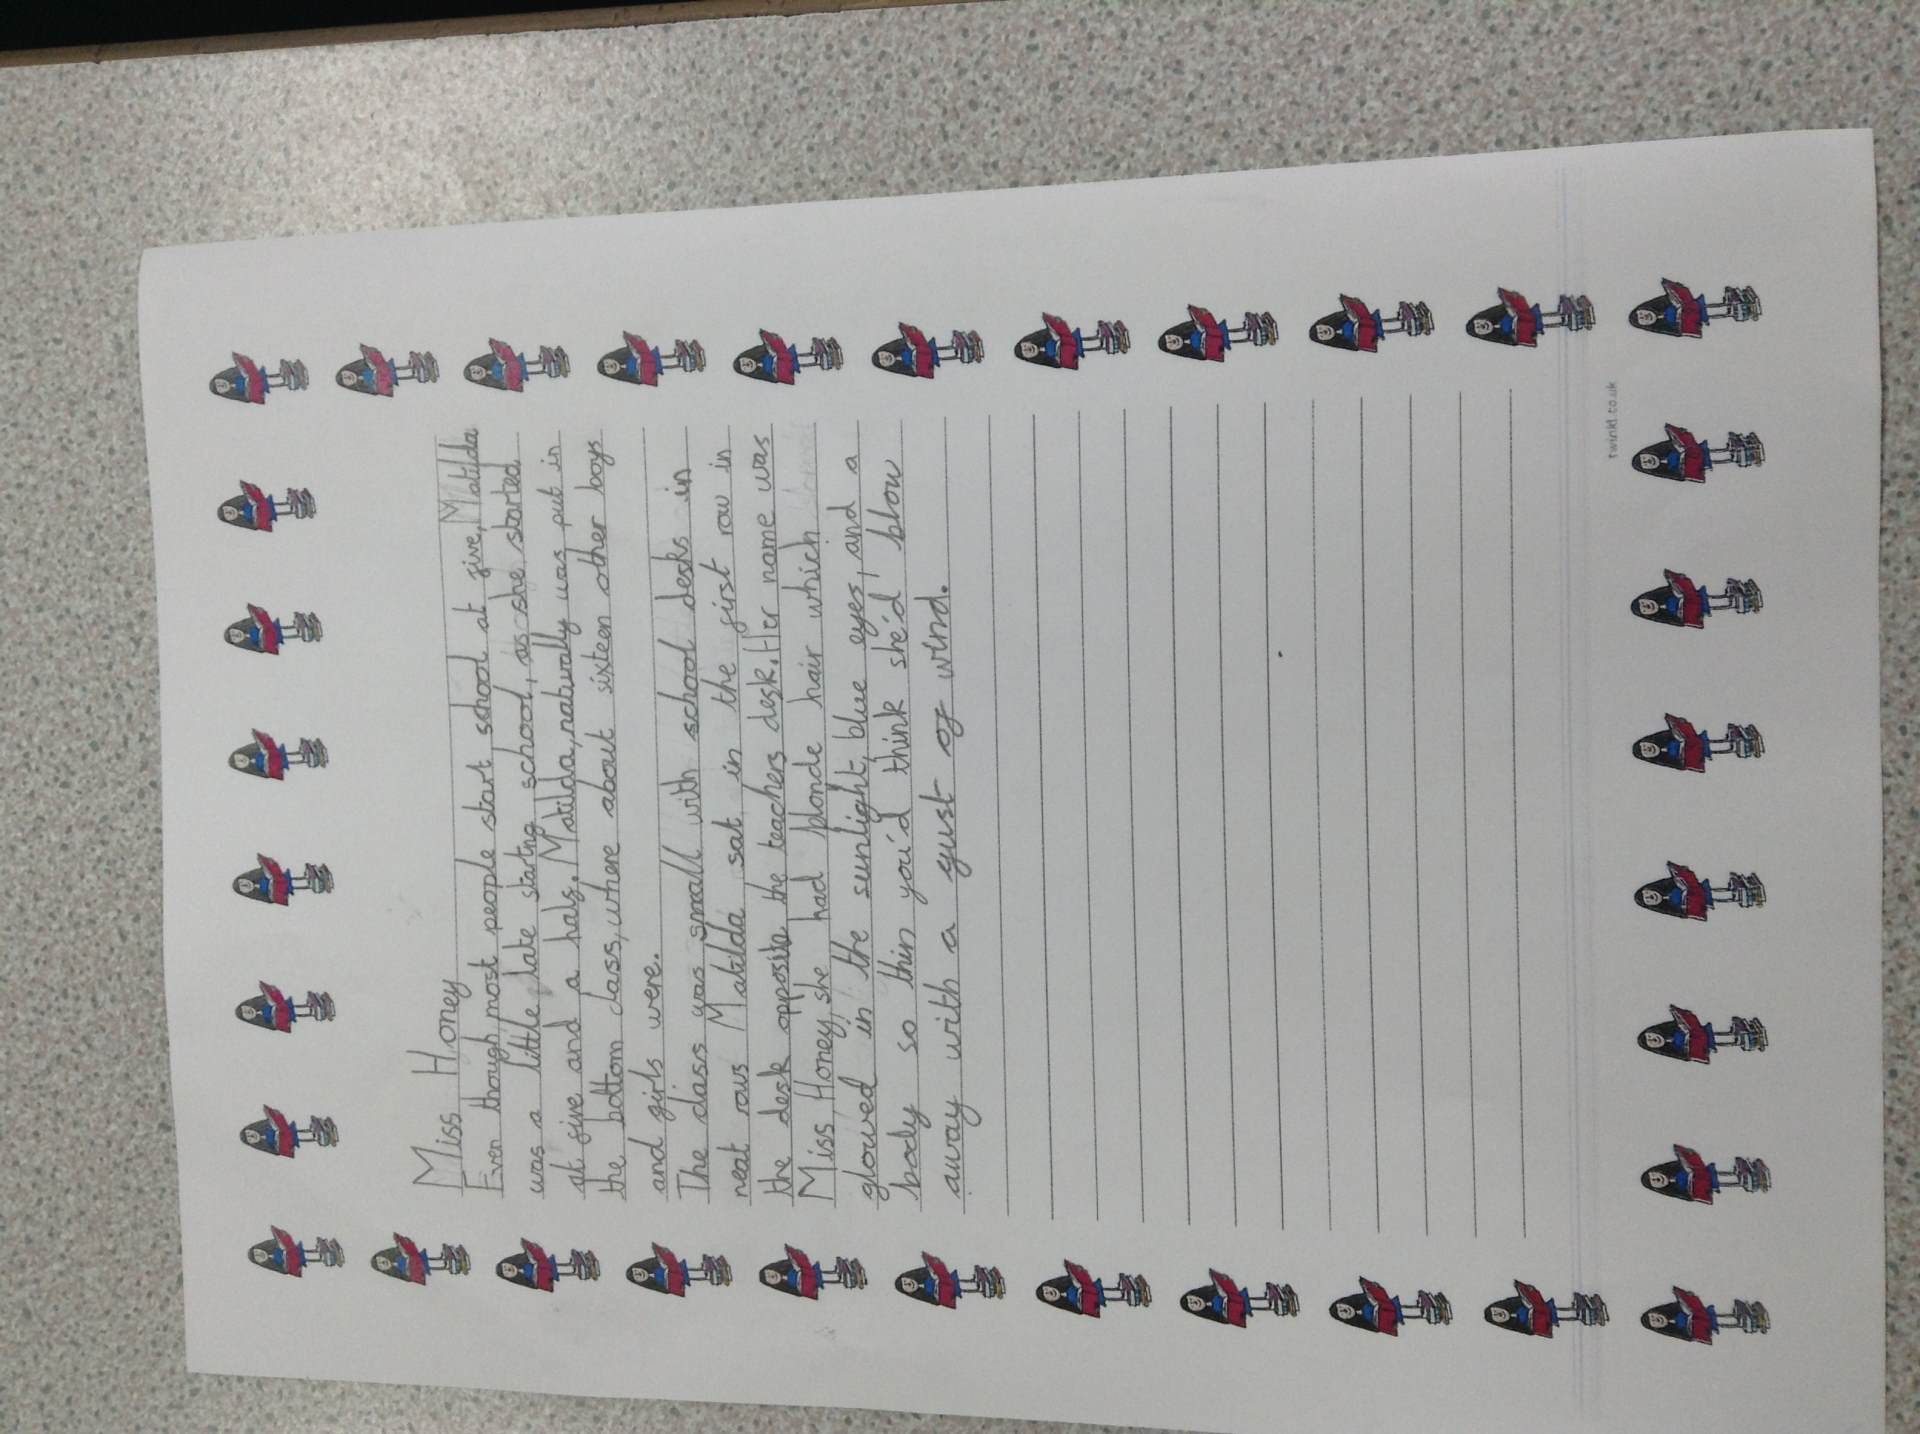 Miss Honey
Even though most people start school at five, Matilda
was a little late startng school, as she started
at five and a half. Matilda, naturally was put in
the bottom class, where about sixteen other boys
and girls were.
The class was small with school desks in
neat rows Matilda sat in the first row in
the desk opposite the teachers desk. Her name was
Miss Honey, she had blonde hair which
glowed in the sunlight, blue eyes, and a
body so thin you'd think she'd blow
away with a gust of wind.
twinkl.co.uk